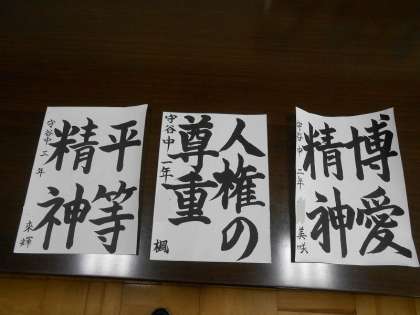 平等
精神
守谷中 三年
来輝
人権の
尊重
守谷中 一年
楓
博愛
精神
守谷中 二年
美咲